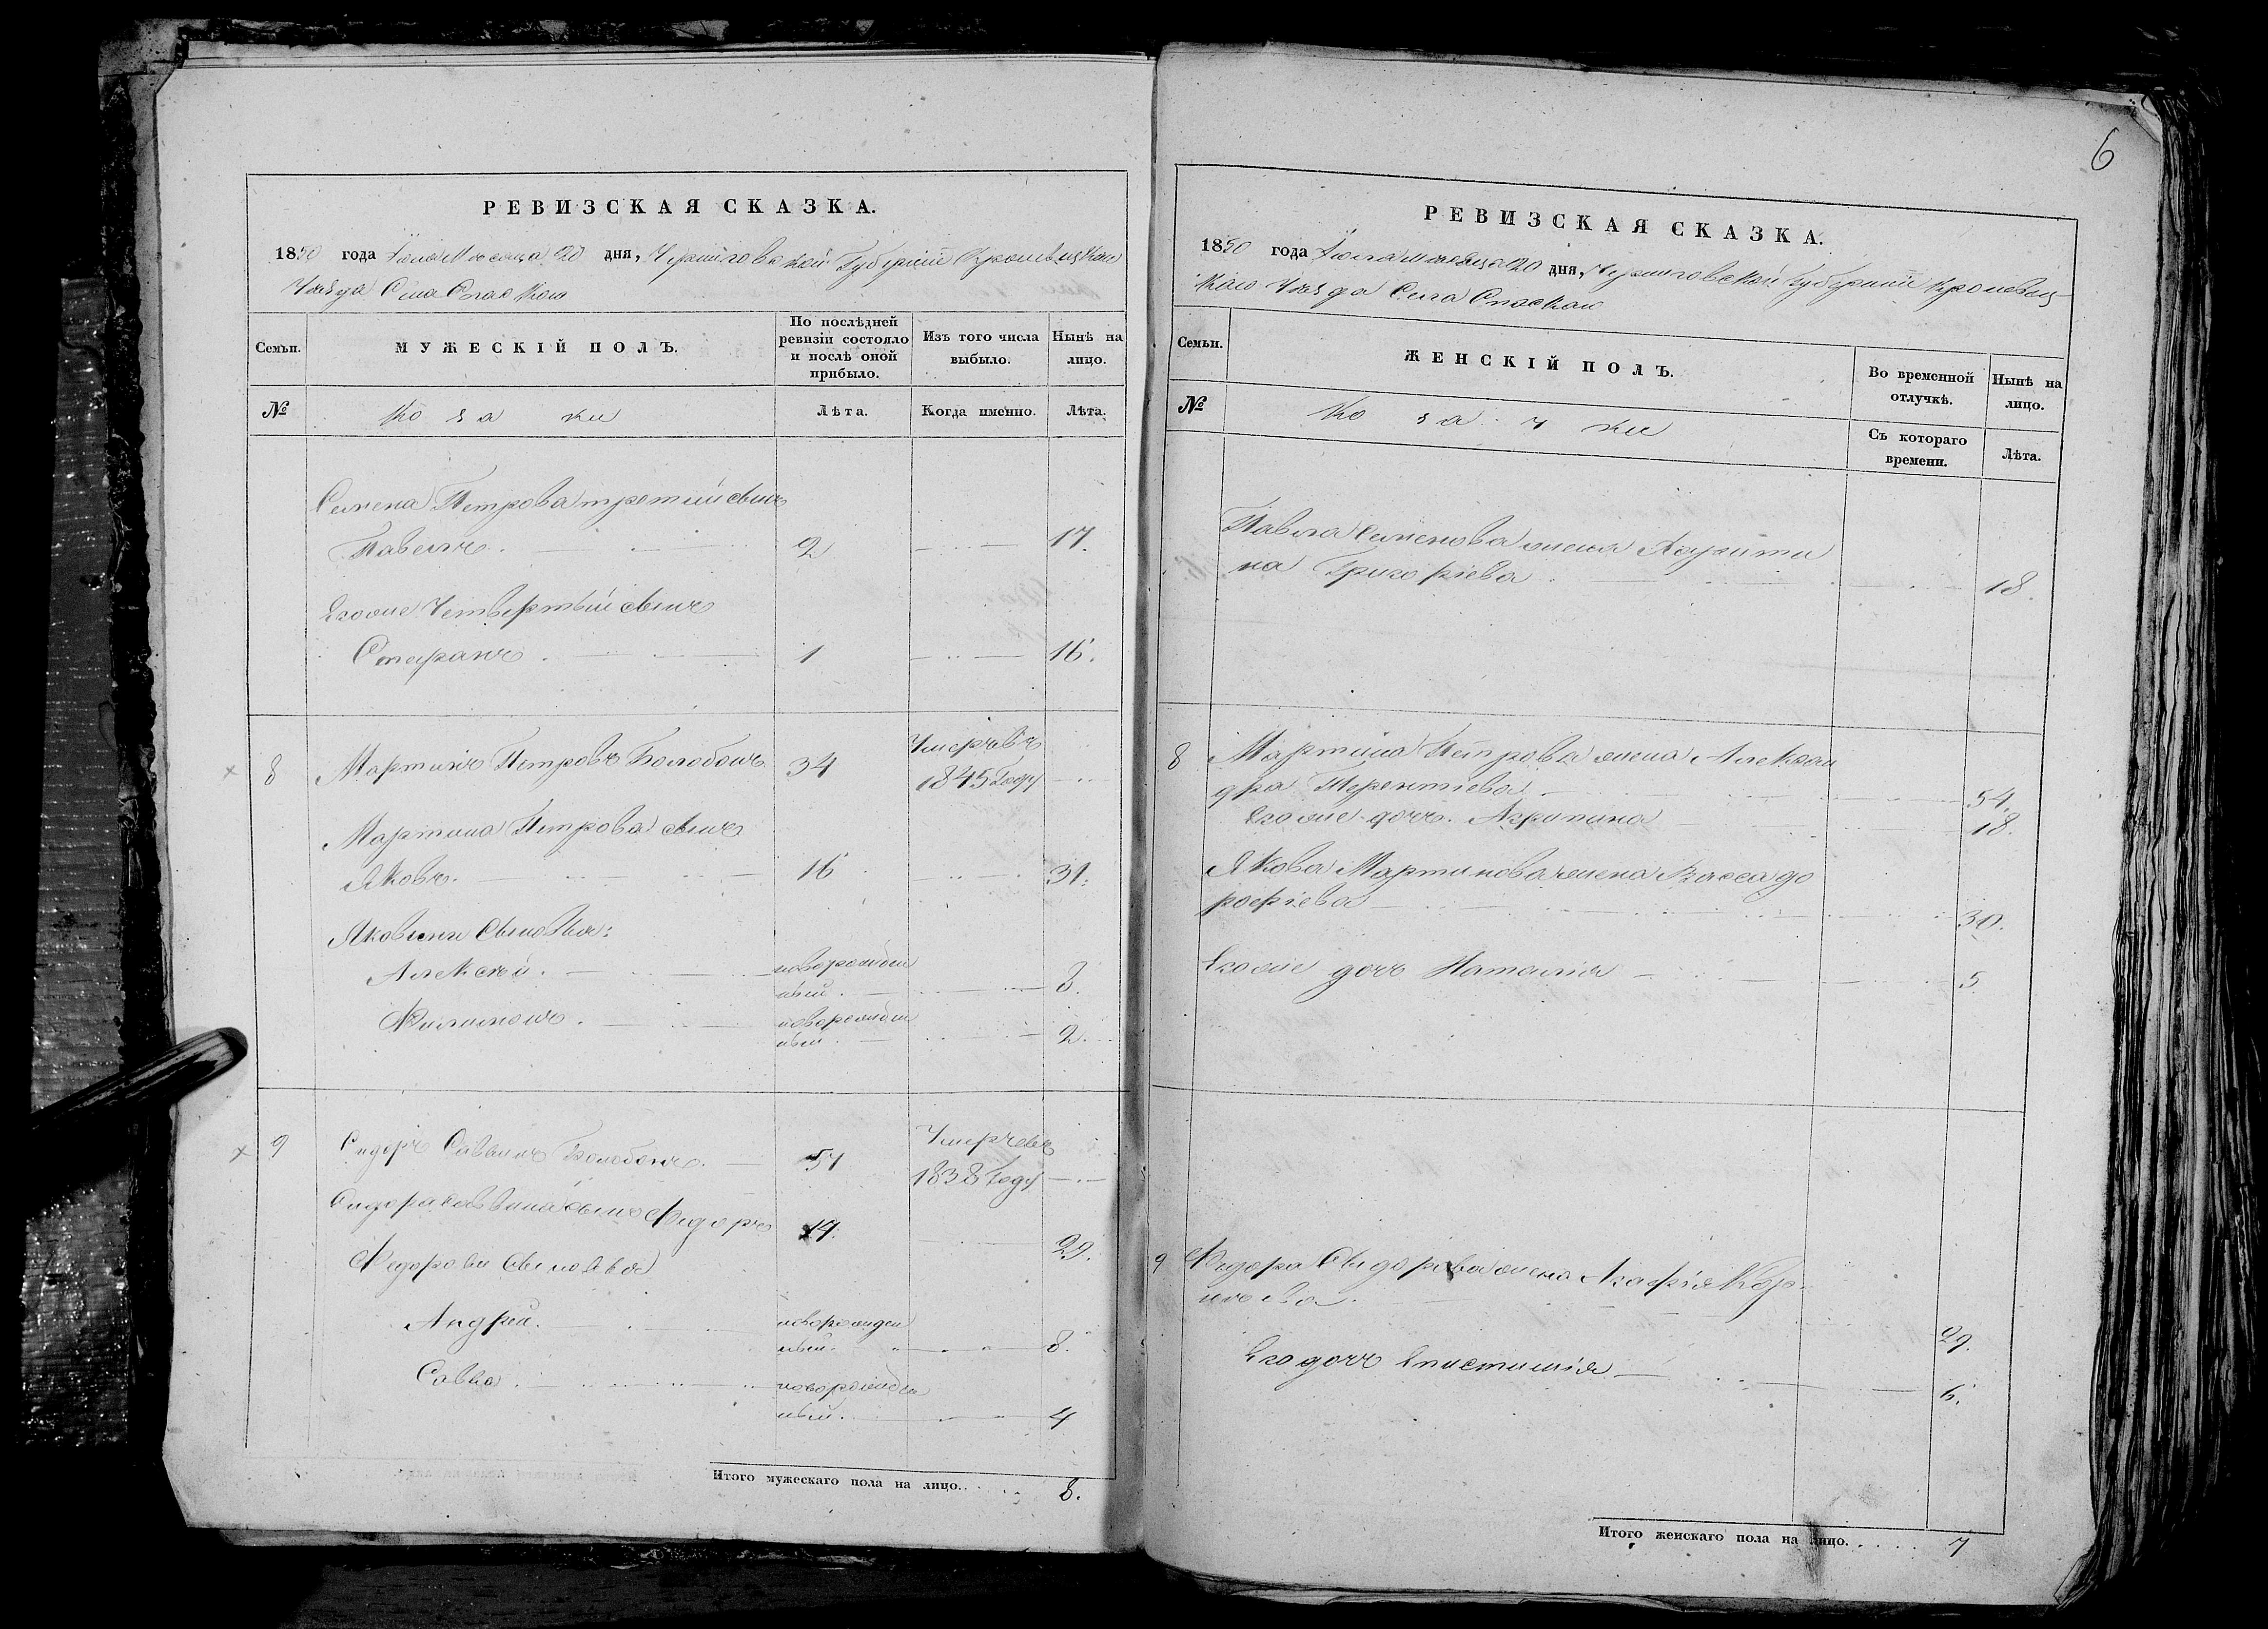 6
РЕВИЗСКАЯ СКАЗКА.
1850 года Іюля Месяца 20 дня, Черниговской Губерніи Кролевецкаго
Уезда Села Спаскаго
Семьи.
МУЖЕСКІЙ ПОЛЪ.
По послѣдней
ревизіи состояло
и послѣ оной
прибыло.
Изъ того числа
выбыло.
Нынѣ на
лицо.
№
Козаки
Лѣта.
Когда именно.
Лѣта.
Семена Петрова третий сынъ
Павелъ. 2 17.
Егоже Четвертый сынъ
Стефанъ 1 16.
8 Мартинъ Петровъ Болобонъ 34 Умеръ въ
1845 Году
Мартина Петрова сынъ
Яковъ. 16 31.
Яковыни Сыновья:
Алексей. новорожден
ный. 8.
Филимонъ. новорожден
ный 2.
9 Сидоръ Саввинъ Болобонъ. 51 Умеръ въ
1838 Году
Сидора Саввина сынъ Федоръ 14. 29.
Федоровы Сыновья
Андрей. новорожден
ный. 8.
Савва. новорожден
ный. 4
Итого мужескаго пола на лицо. 8.
РЕВИЗСКАЯ СКАЗКА.
1850 года Іюля месяца 20 дня, Черниговской Губерніи Кролевец-
каго Уезда Села Спаскаго
Семьи.
ЖЕНСКІЙ ПОЛЪ.
Во временной
отлучкѣ.
Нынѣ на
лицо.
№
Козачки
Съ котораго
времени.
Лѣта.
Павла Семенова жена
на Григоріева 18.
8 Мартина Петрова жена Алексан
дра Терентіева 54.
Егоже дочь Агрипина 18.
Якова Мартинова жена Васса до
рофіева 30.
Егоже дочь Наталия 5
9 Федора Сидорова жена Агафія Кор-
неева. 29.
Его дочь Епистимія 6.
Итого женскаго пола на лицо. 7